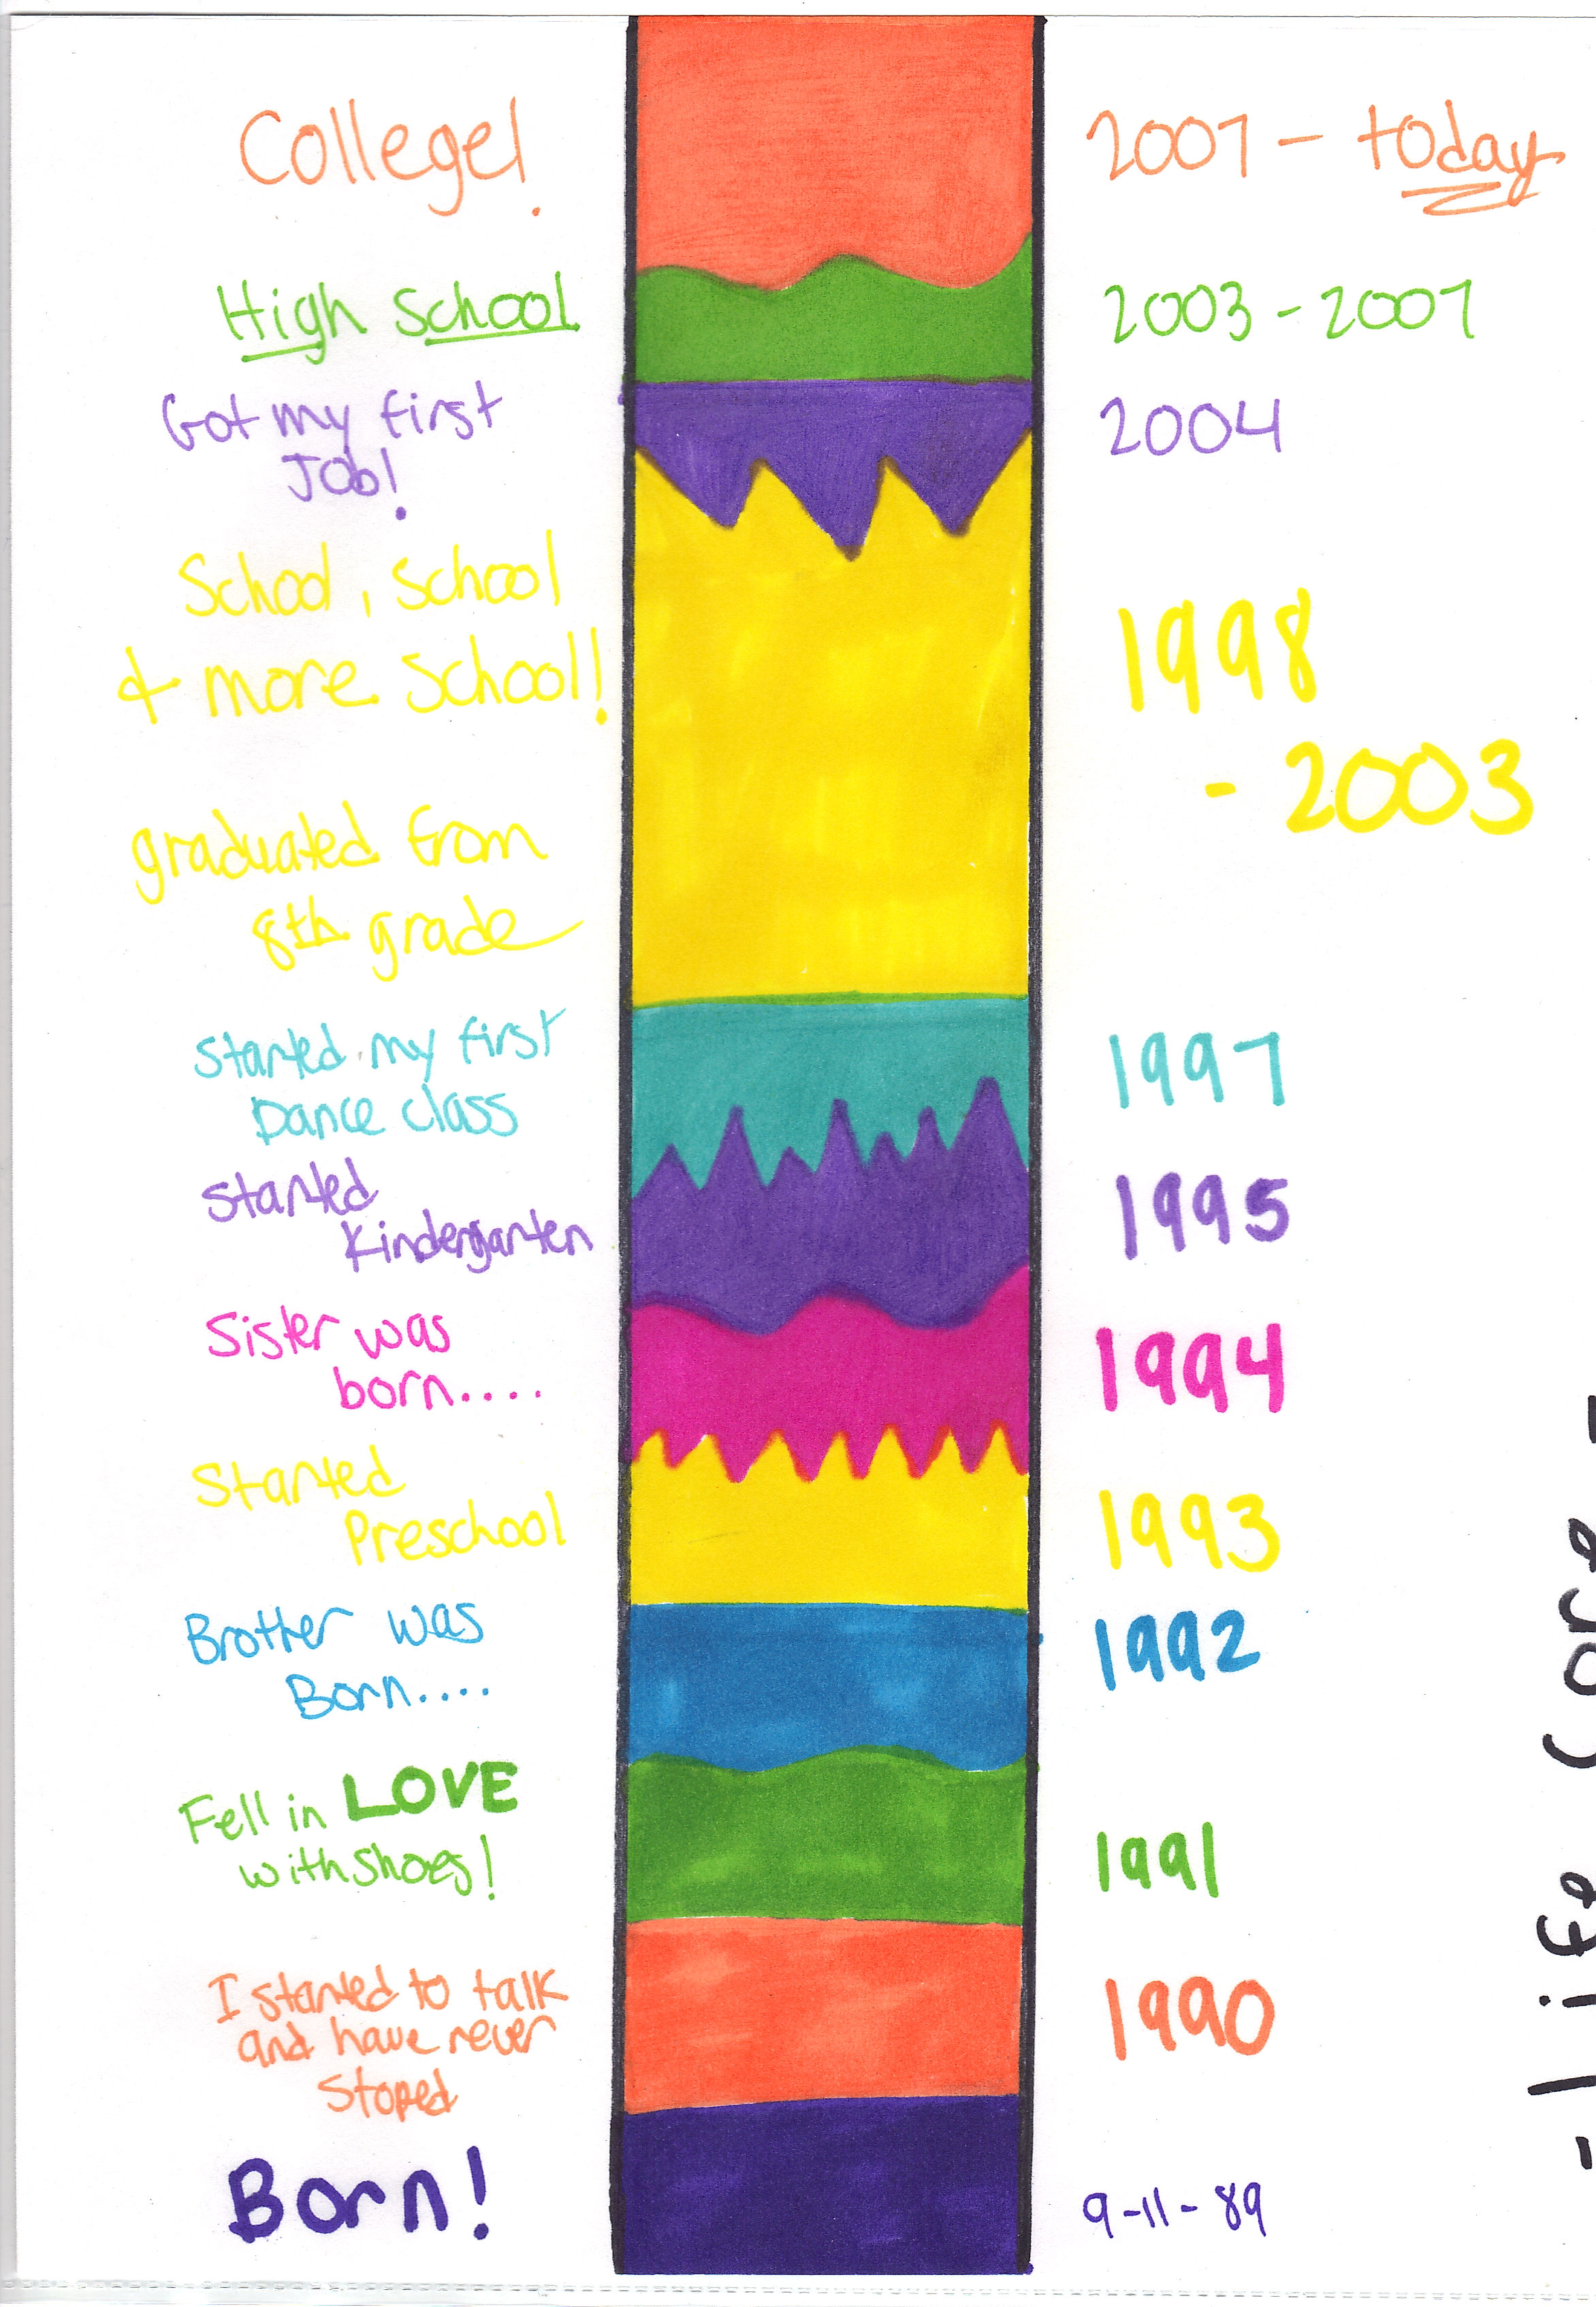 College!
2007 - today
High School
2003 - 2007
Got my first
Job!
2004
School, school
& more school!
1998
- 2003
graduated from
8th grade
Started my first
Dance class
1997
Started
Kindergarten
1995
Sister was
born....
1994
Started
Preschool
1993
Brother was
Born....
1992
Fell in LOVE
with shoes!
1991
I started to talk
and have never
Stoped
1990
Born!
9-11-89
- Life Core -